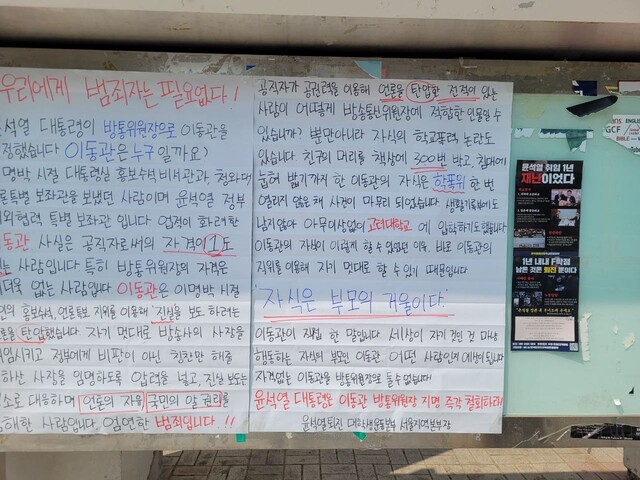 우리에게 범죄자는 필요없다!
윤석열 대통령이 방통위원장으로 이동관을
지정했습니다 이동관은 누구일까요?
이명박 시절 대통령실 홍보수석비서관과 청와대
언론특별 보좌관을 보냈던 사람이며 윤석열 정부
대외협력 특별 보좌관 입니다 업적이 화려한
이동관 사실은 공직자로써의 자격이 1도
없는 사람입니다 특히 방통위원장의 자격은
더욱 없는 사람입니다 이동관은 이명박 시절
홍보수석, 언론특보 지위를 이용해 진실을 보도 하려는
언론을 탄압했습니다 자기 멋대로 방송사의 사장을
정부에 비판이 아닌 칭찬만 해줄
사장을 임명하도록 압력을 넣고, 진실 보도는
고소로 대응하며 언론의 자유 국민의 알 권리를
방해한 사람입니다, 엄연한 범죄자입니다!!
공직자가 공권력을 이용해 언론을 탄압한 전적이 있는
사람이 어떻게 방송통신위원장에 적합한 인물일 수
있습니까? 뿐만아니라 자식의 학교폭력 논란도
있습니다 친구의 머리를 책상에 300번 박고, 침대에
눕혀 밟기까지 한 이동관의 자식은 학폭위 한 번
열리지 않은 채 사건이 마무리 되었습니다 생활기록부에도
남지않아 아무이상없이 고려대학교에 입학하기도했습니다
이동관의 자식이 이렇게 할 수 있었던 이유, 바로 이동관의
지위를 이용해 자기 멋대로 할 수 있기 때문입니다
"자식은 부모의 거울이다"
이동관이 직접 한 말입니다 세상이 자기 것인 것 마냥
행동하는 자식의 부모인 이동관, 어떤 사람인지 예상이 됩니다
자격없는 이동관을 방통위원장으로 둘 수 없습니다!
윤석열 대통령은 이동관 방통위원장 지명 즉각 철회하라!
윤석열퇴진 대학생운동본부 서울지역본부장
윤석열 취임 1년
재난이었다
1년 내내 F학점
남은 것은 퇴진 뿐이다
GCF